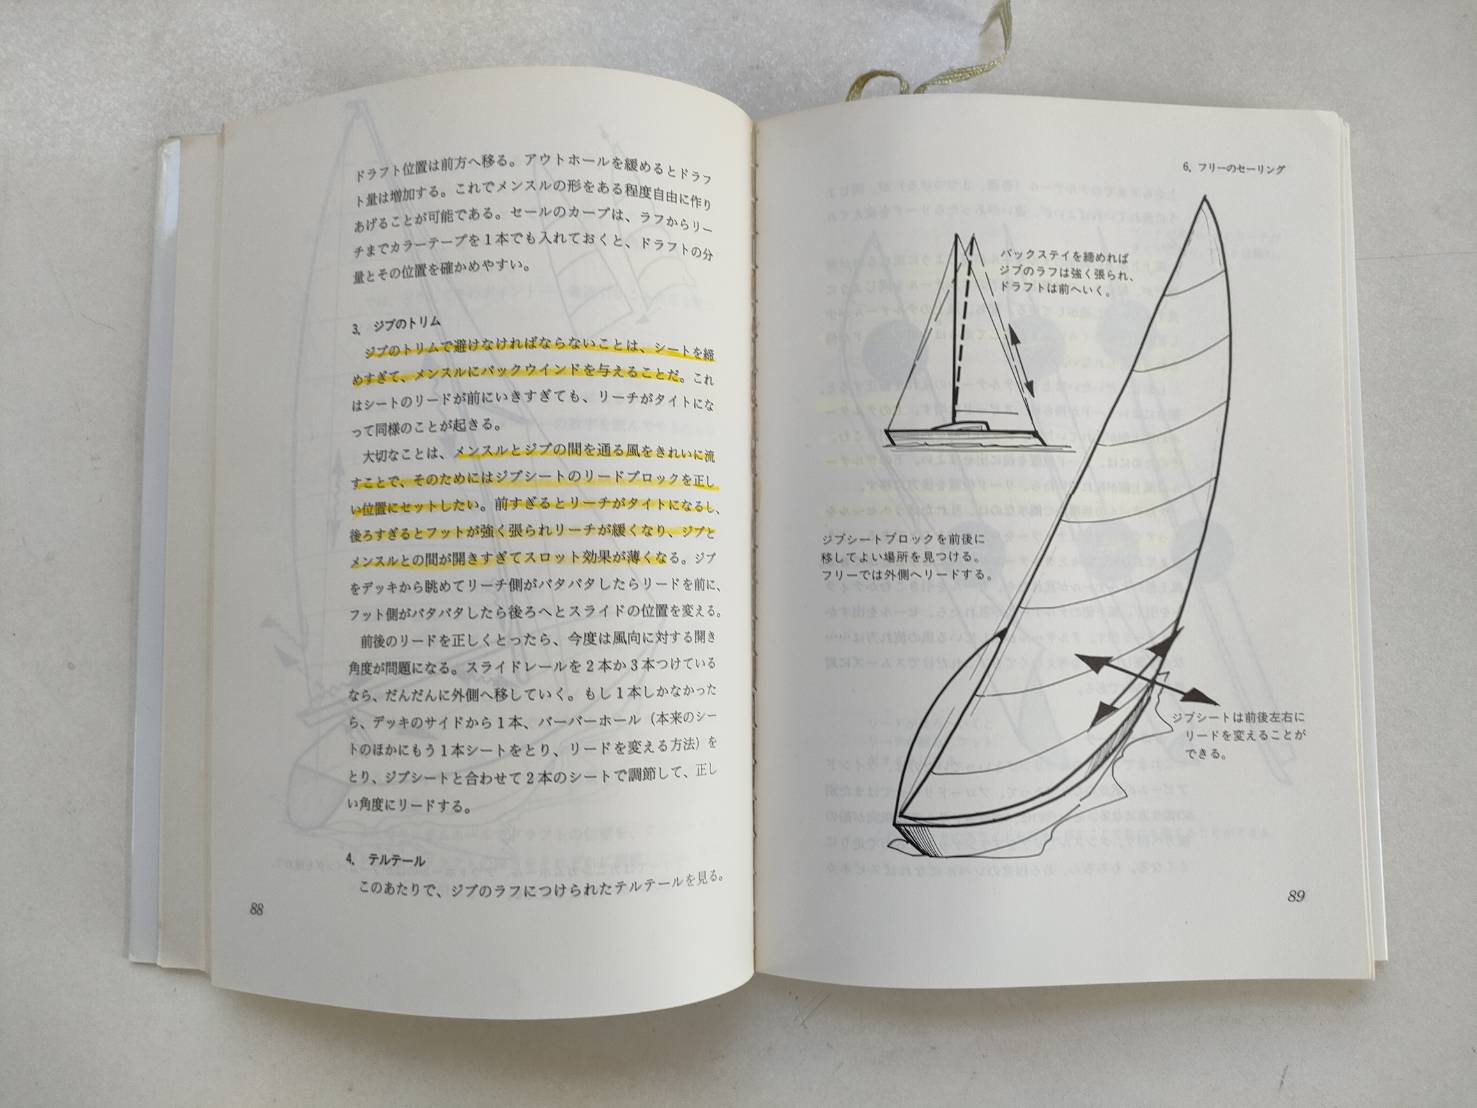 ドラフト位置は前方へ移る。アウトホールを緩めるとドラフ
ト量は増加する。これでメンスルの形をある程度自由に作り
あげることが可能である。セールのカーブは、ラフからリー
チまでカラーテープを1本でも入れておくと、ドラフトの分
量とその位置を確かめやすい。
3. ジブのトリム
ジブのトリムで避けなければならないことは、シートを締
めすぎて、メンスルにバックウインドを与えることだ。これ
はシートのリードが前にいきすぎても、リーチがタイトにな
って同様のことが起きる。
大切なことは、メンスルとジブの間を通る風をきれいに流
すことで、そのためにはジブシートのリードブロックを正し
い位置にセットしたい。前すぎるとリーチがタイトになるし、
後ろすぎるとフットが強く張られリーチが緩くなり、ジブと
メンスルとの間が開きすぎてスロット効果が薄くなる。ジブ
をデッキから眺めてリーチ側がバタバタしたらリードを前に、
フット側がバタバタしたら後ろへとスライドの位置を変える。
前後のリードを正しくとったら、今度は風向に対する開き
角度が問題になる。スライドレールを2本か3本つけている
なら、だんだんに外側へ移していく。もし1本しかなかった
ら、デッキのサイドから1本、バーバーホール（本来のシー
トのほかにもう1本シートをとり、リードを変える方法）を
とり、ジブシートと合わせて2本のシートで調節して、正し
い角度にリードする。
4. テルテール
このあたりで、ジブのラフにつけられたテルテールを見る。
88
6. フリーのセーリング
バックステイを締めれば
ジブのラフは強く張られ、
ドラフトは前へいく。
ジブシートブロックを前後に
移してよい場所を見つける。
フリーでは外側へリードする。
ジブシートは前後左右に
リードを変えることが
できる。
89